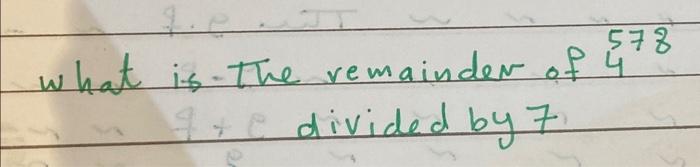 what is the remainder of 4⁵⁷⁸
divided by 7